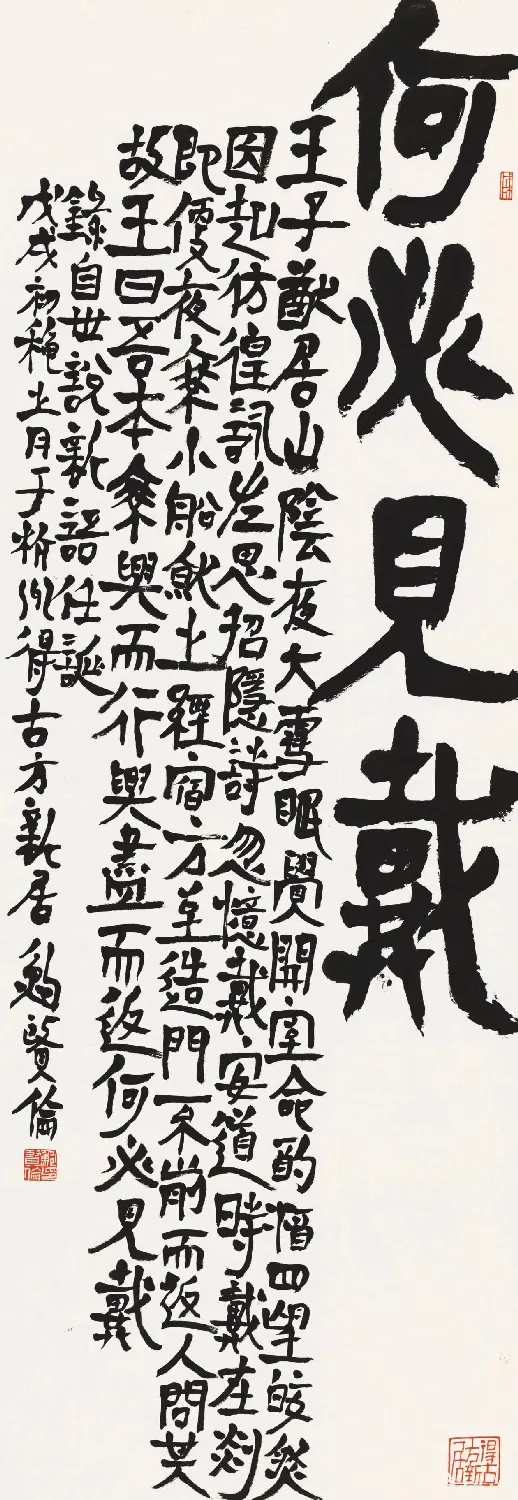 何必見戴
王子猷居山陰夜大雪眠覺開室命酌酒四望皎然
因起彷徨詠左思招隱詩忽憶戴安道時戴在剡
即便夜乘小船就之經宿方至造門不前而返人問其
故王曰吾本乘興而行興盡而返何必見戴
錄自世說新語任誕
戊戌初穐之月于杭州得古方新居鮑賢倫